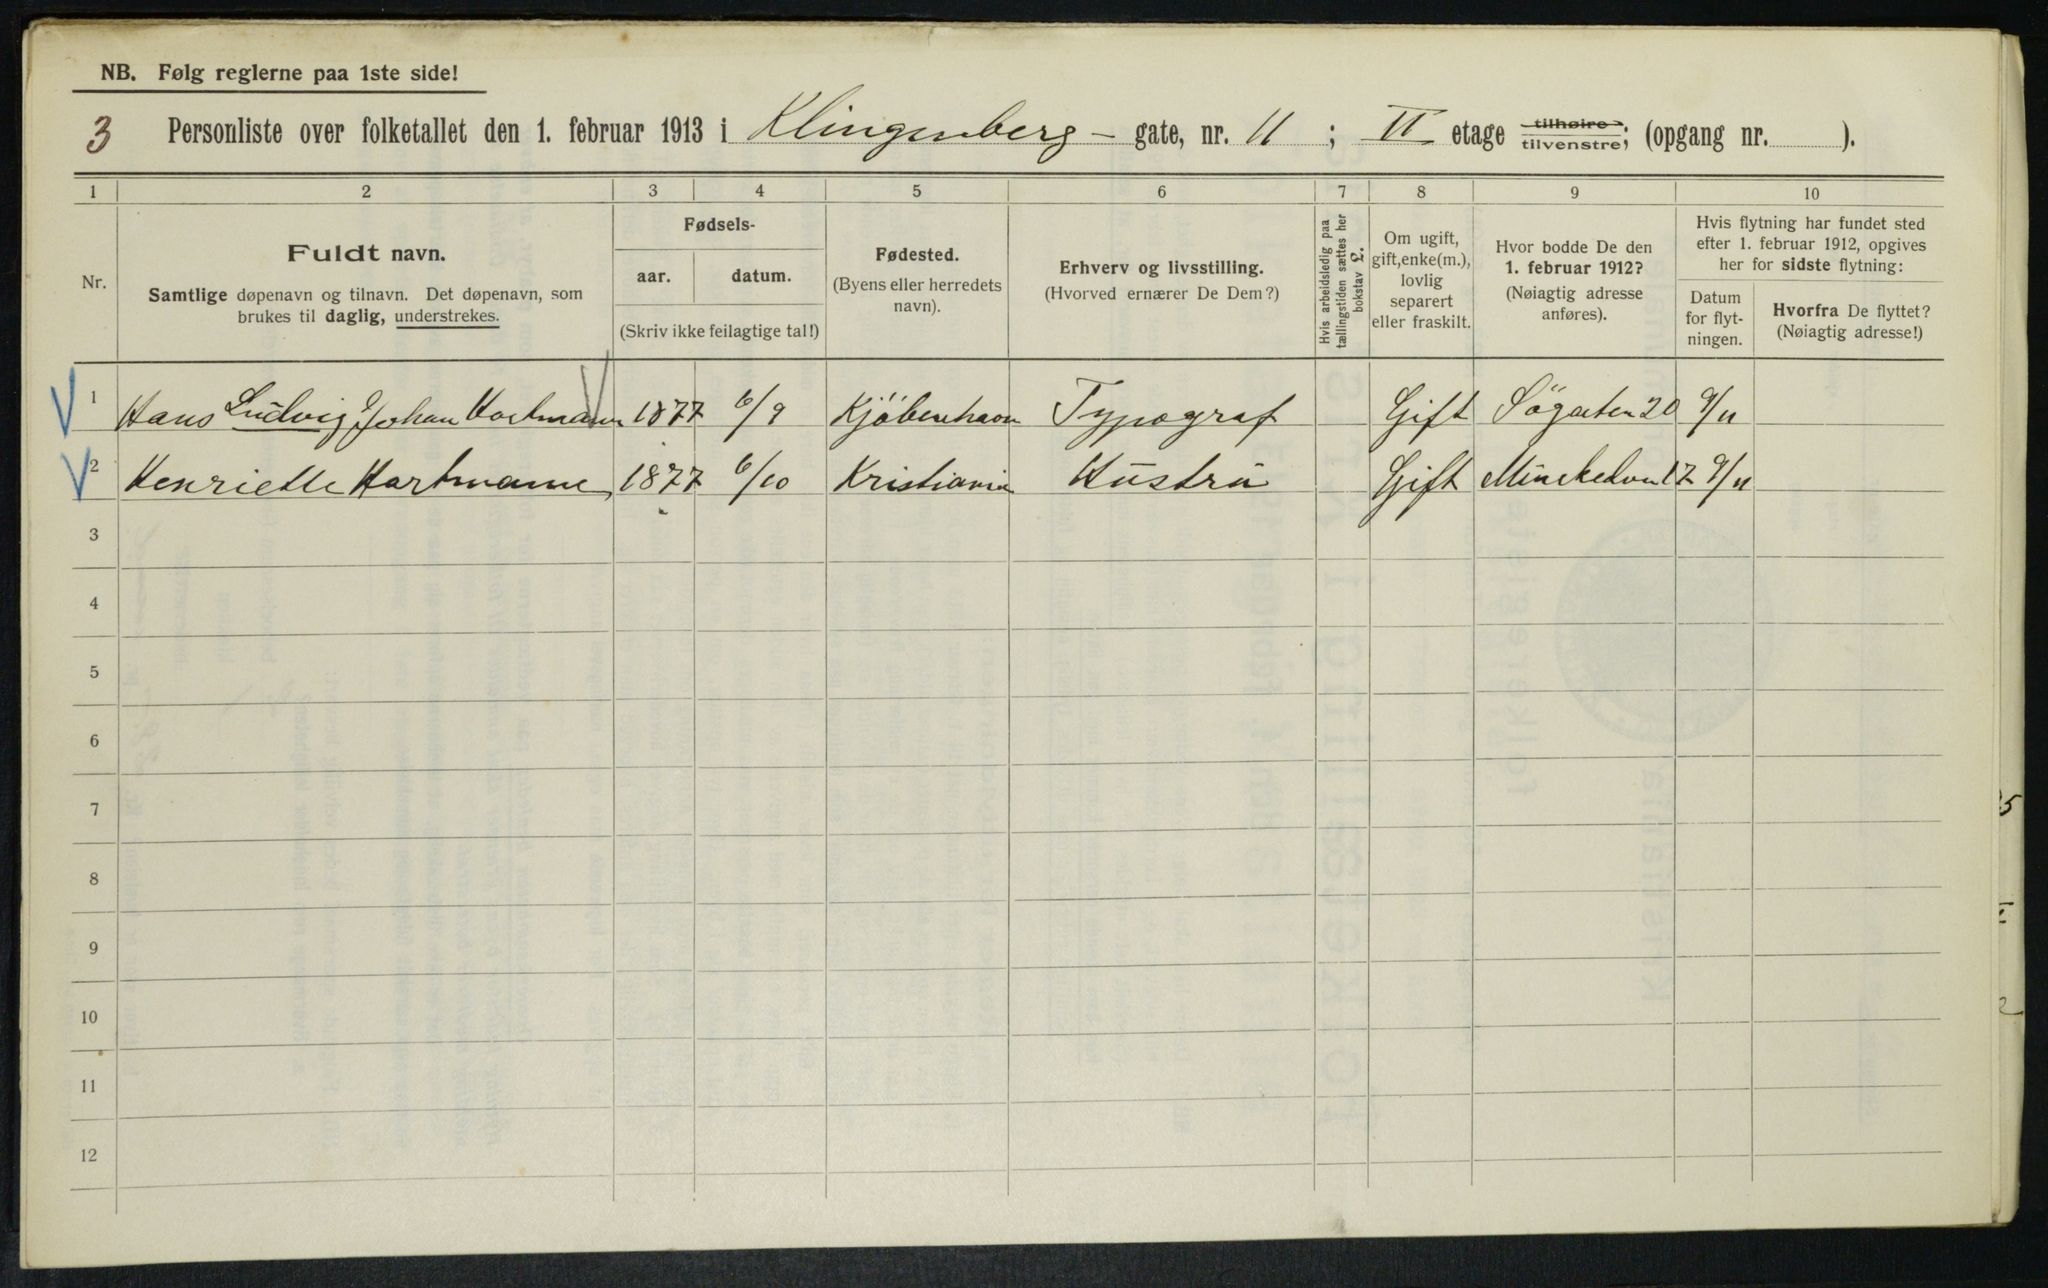 NB. Følg reglerne paa 1ste side!
3 Personliste over folketallet den 1. februar 1913 i Klingenberg - gate, nr. 11 ; VI etage tilhøire tilvenstre; (opgang nr. ).
1 2 3 4 5 6 7 8 9 10
Nr.
Fuldt navn.
Samtlige døpenavn og tilnavn. Det døpenavn, som
brukes til daglig, understrekes.
Fødsels-
aar. datum.
(Skriv ikke feilagtige tal!)
Fødested.
(Byens eller herredets
navn).
Erhverv og livsstilling.
(Hvorved ernærer De Dem?)
Hvis arbeidsledig paa
tællingstiden sættes her
bokstav £.
Om ugift,
gift, enke(m.),
lovlig
separert
eller fraskilt.
Hvor bodde De den
1. februar 1912?
(Nøiagtig adresse
anføres).
Hvis flytning har fundet sted
efter 1. februar 1912, opgives
her for sidste flytning:
Datum
for flyt-
ningen.
Hvorfra De flyttet?
(Nøiagtig adresse!)
1 Hans Ludvig Johan Hartmann 1877 6/9 Kjöbenhavn Typograf Gift Sögaten 20 9/11
2 Henriette Hartmann 1877 6/10 Kristiania Hustru Gift 17 9/11
3
4
5
6
7
8
9
10
11
12